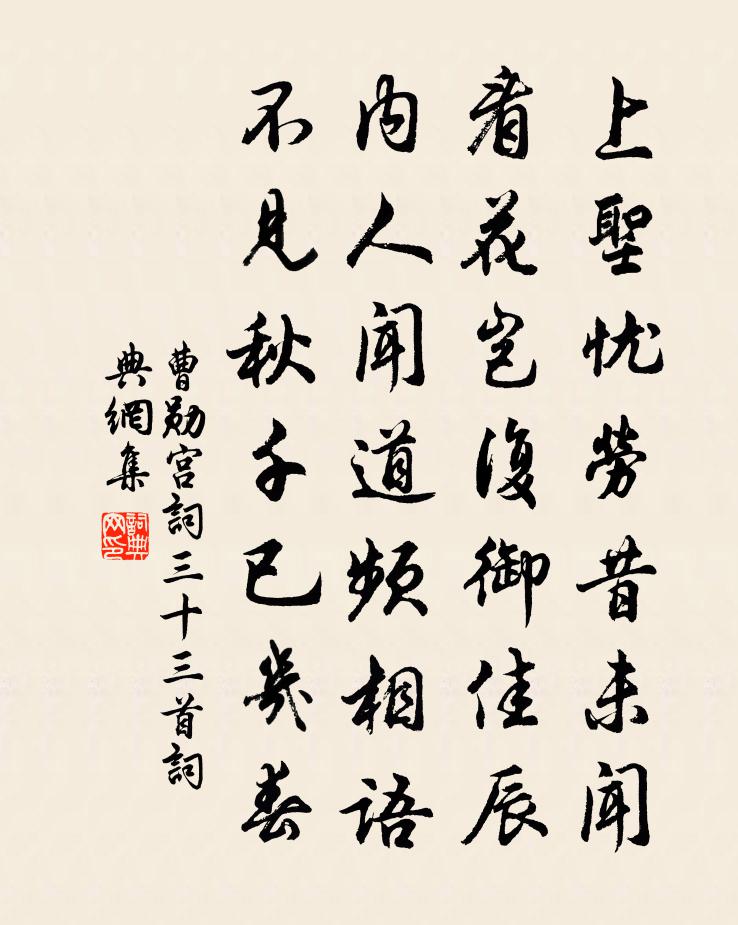 上聖忧勞昔未聞
看花豈復御佳辰
内人聞道頻相語
不見秋千已幾春
曹勛宫詞三十三首詞
典網集
詞典网印